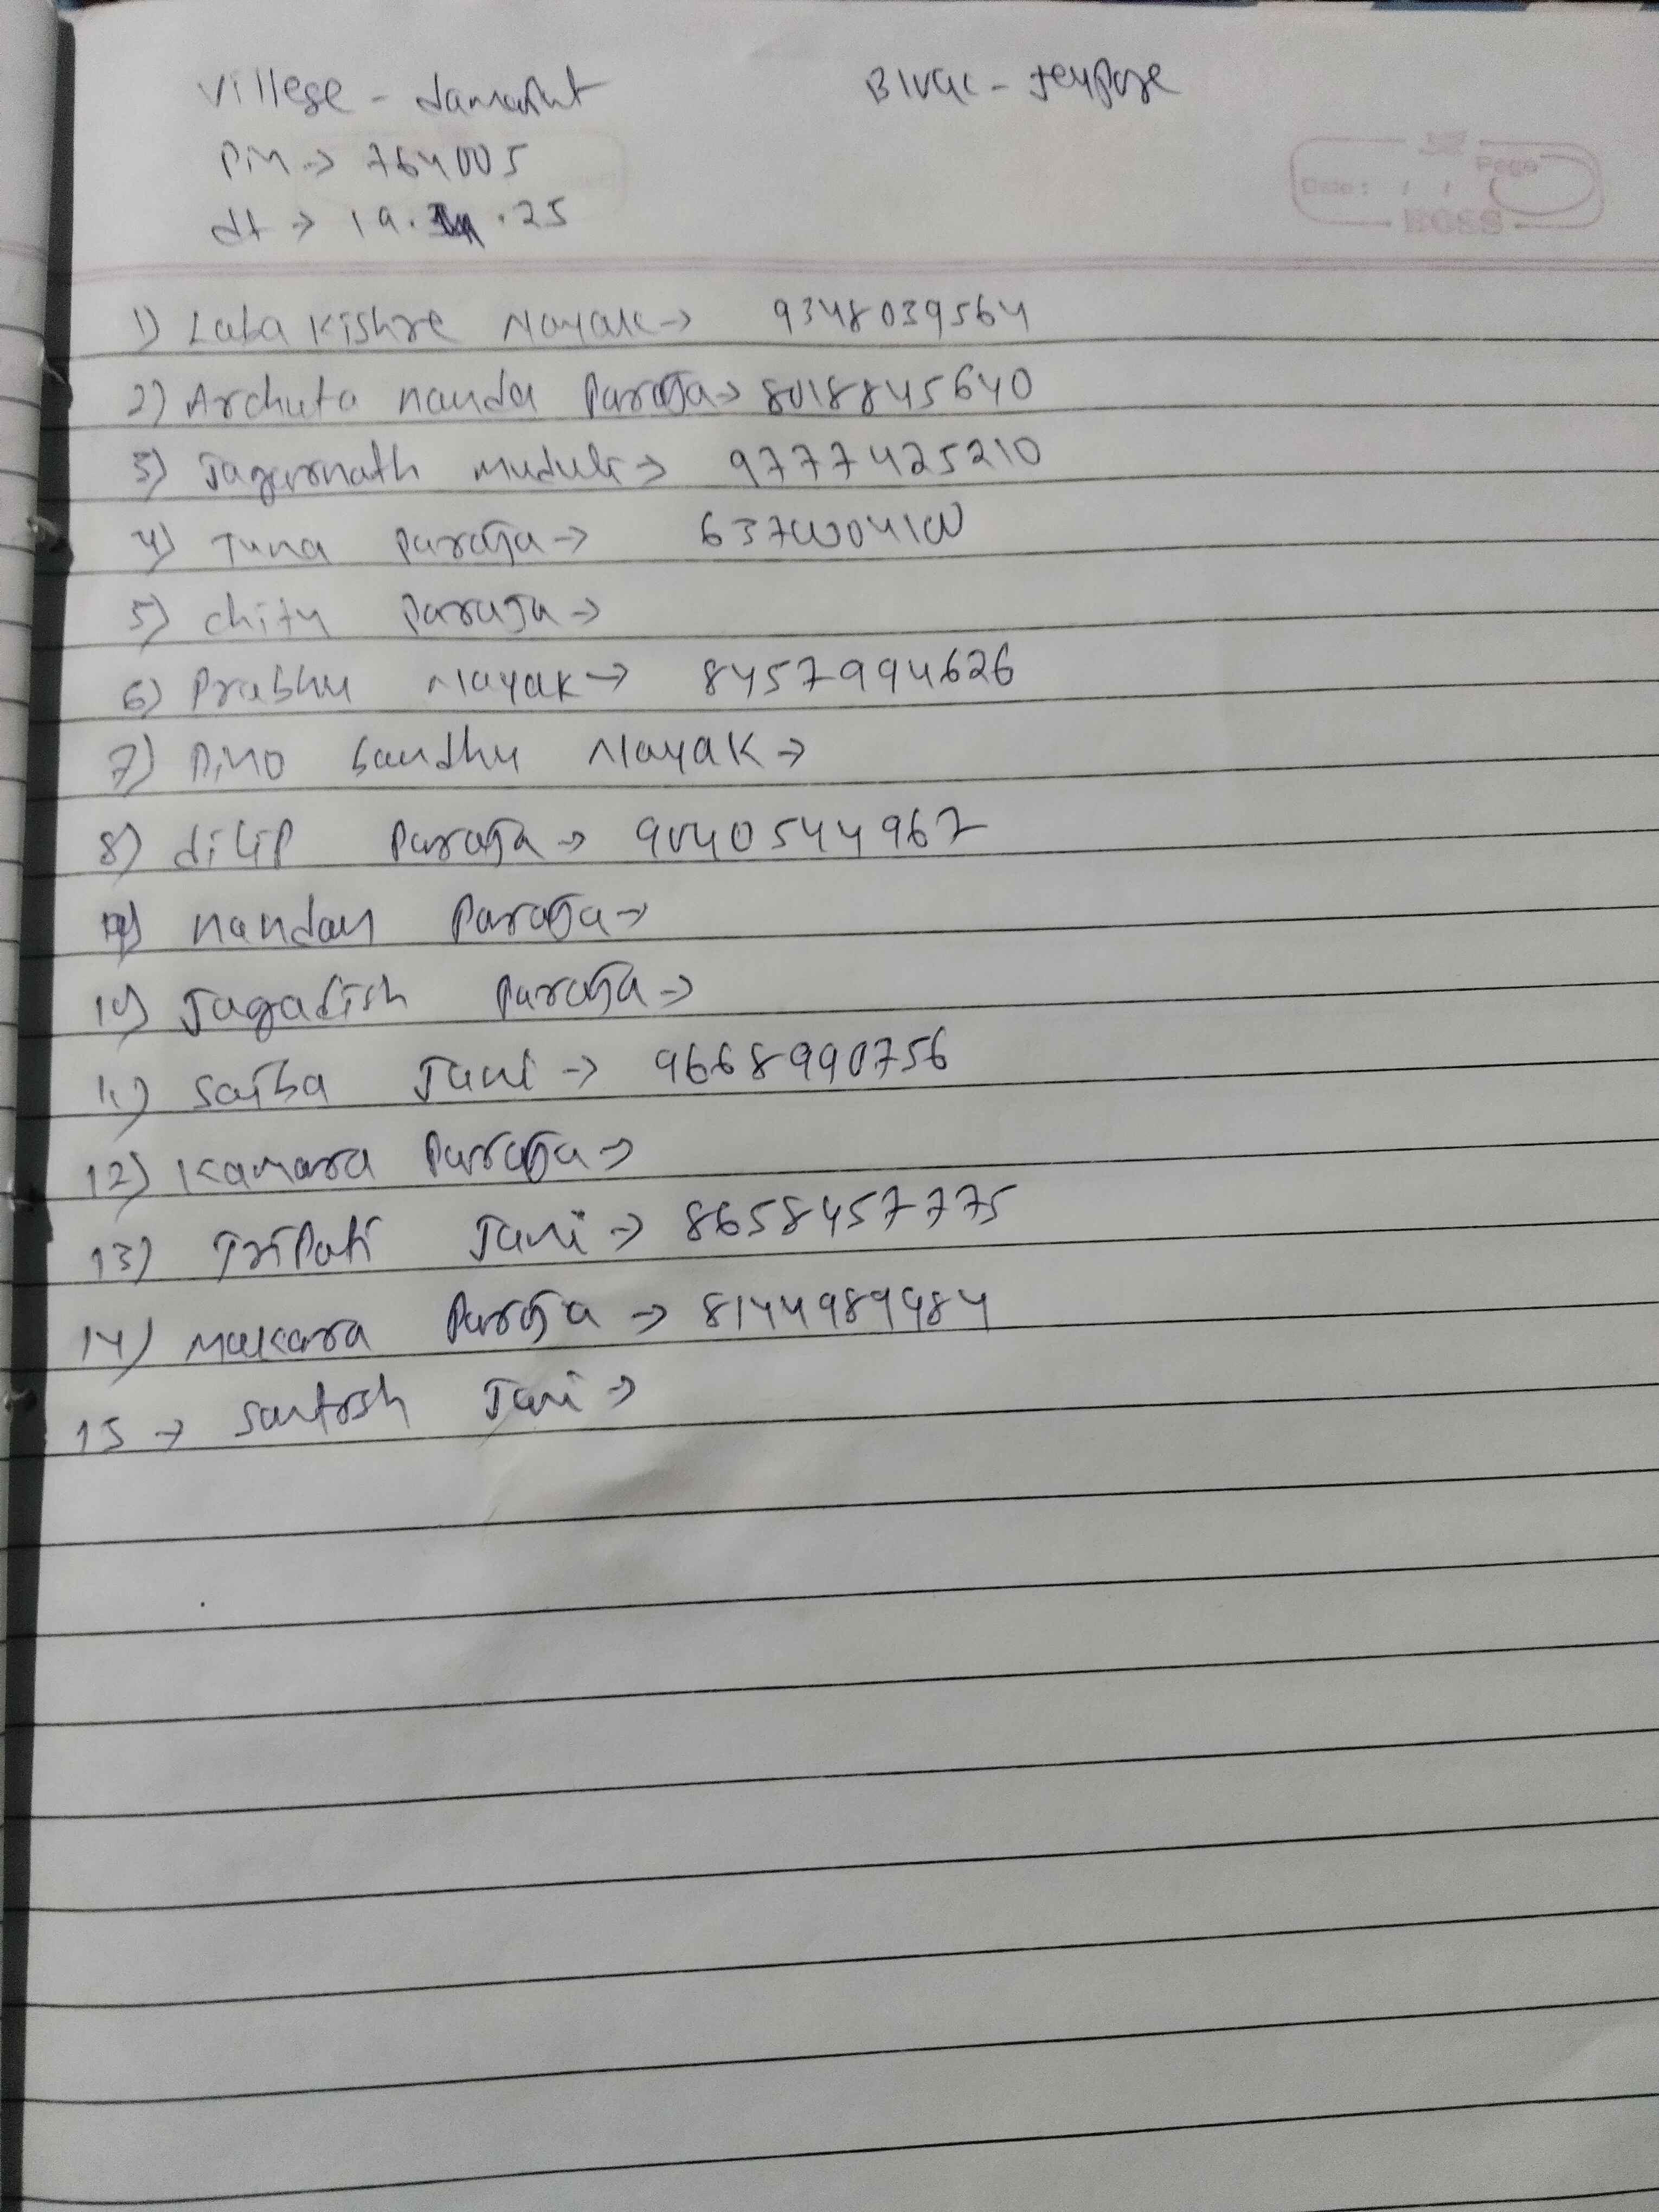 Villege - Jamaput Block - Jeypore
Pin → 764005
Page
Date :
dt → 19. .25
BOSS
1) Laba Kishre Nayak → 9348039564
2) Archuta nanda Paraja → 8018845640
3) Jagernath Muduli → 9777425210
4) Tuna Paraja → 6370004100
5) chitu Paraja →
6) Prabhu Nayak → 8457994626
7) Dino bandhu Nayak →
8) dilip Paraja → 9040544967
9) nandan Paraja →
10) Jagadish Paraja →
11) Saiba Jani → 9668990756
12) Kamara Paraja →
13) Tripati Jani → 8658457775
14) Makara Paraja → 8144989484
15 → Santosh Jani →